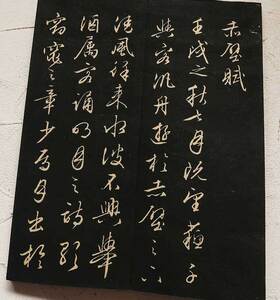 赤壁賦
壬戌之秋七月既望蘇子
與客泛舟遊於赤壁之下
清風徐來水波不興舉
酒属客誦明月之詩歌
窈窕之章少焉月出於